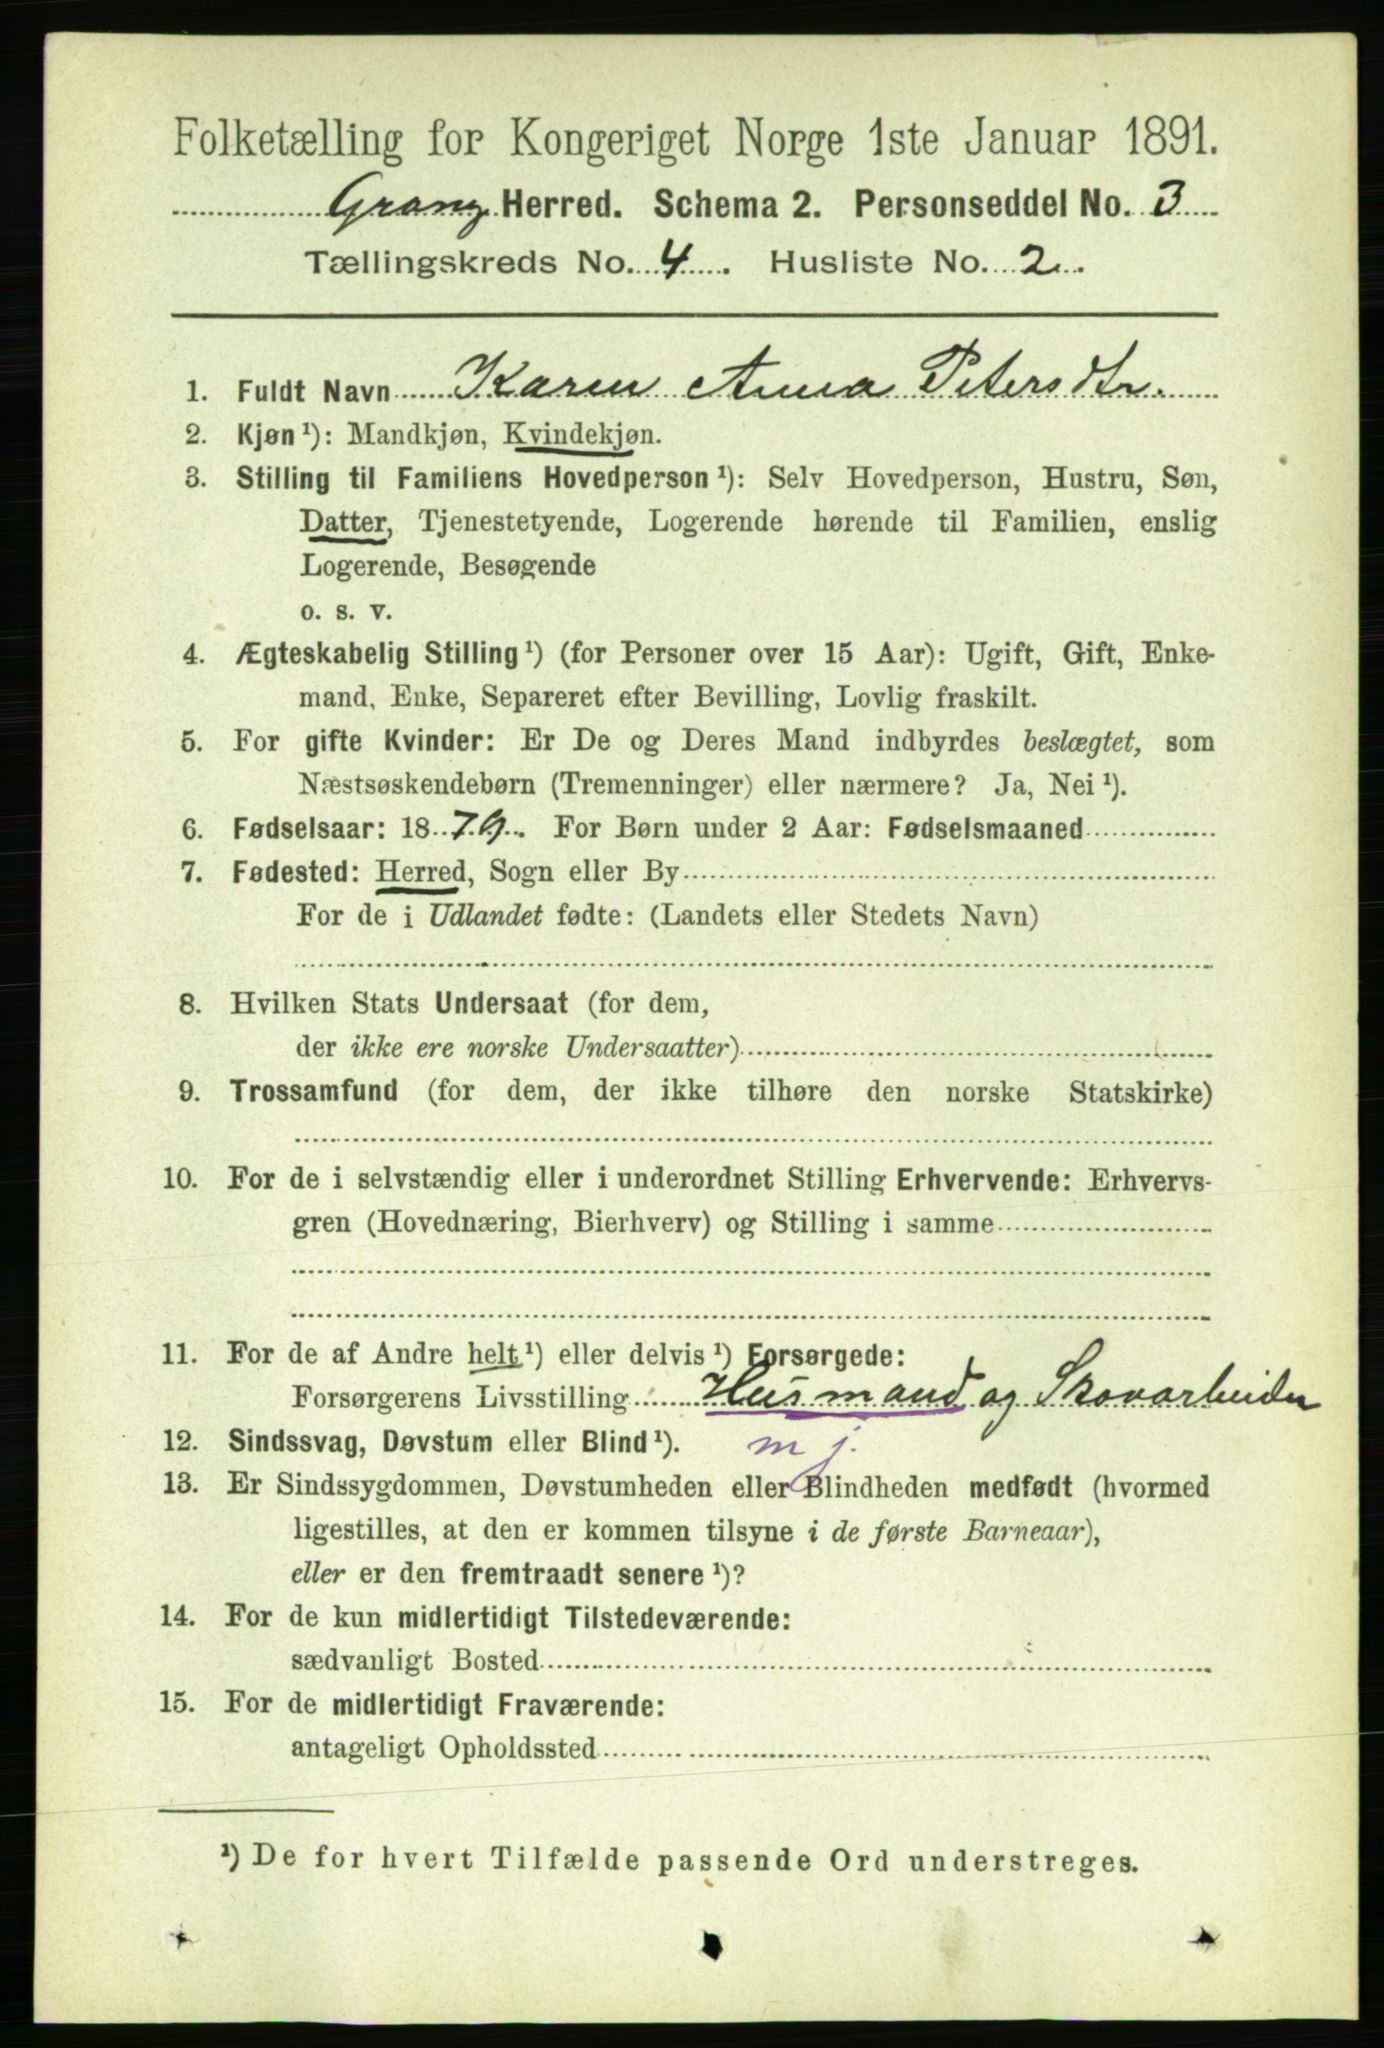 Folketælling for Kongeriget Norge 1ste Januar 1891.
Grans Herred. Schema 2. Personseddel No. 3
Tællingskreds No. 4. Husliste No. 2.
1. Fuldt Navn Karen Anna Petersdtr.
2. Kjøn ¹): Mandkjøn, Kvindekjøn.
3. Stilling til Familiens Hovedperson ¹): Selv Hovedperson, Hustru, Søn,
Datter, Tjenestetyende, Logerende hørende til Familien, enslig
Logerende, Besøgende
o. s. v.
4. Ægteskabelig Stilling ¹) (for Personer over 15 Aar): Ugift, Gift, Enke-
mand, Enke, Separeret efter Bevilling, Lovlig fraskilt.
5. For gifte Kvinder: Er De og Deres Mand indbyrdes beslægtet, som
Næstsøskendebørn (Tremenninger) eller nærmere? Ja, Nei ¹).
6. Fødselsaar: 1879. For Børn under 2 Aar: Fødselsmaaned
7. Fødested: Herred, Sogn eller By
For de i Udlandet fødte: (Landets eller Stedets Navn)
8. Hvilken Stats Undersaat (for dem,
der ikke ere norske Undersaatter)
9. Trossamfund (for dem, der ikke tilhøre den norske Statskirke)
10. For de i selvstændig eller i underordnet Stilling Erhvervende: Erhvervs-
gren (Hovednæring, Bierhverv) og Stilling i samme
11. For de af Andre helt ¹) eller delvis ¹) Forsørgede:
Forsørgerens Livsstilling Husmand og Skovarbeider
12. Sindssvag, Døvstum eller Blind ¹). m j.
13. Er Sindssygdommen, Døvstumheden eller Blindheden medfødt (hvormed
ligestilles, at den er kommen tilsyne i de første Barneaar),
eller er den fremtraadt senere ¹)?
14. For de kun midlertidigt Tilstedeværende:
sædvanligt Bosted
15. For de midlertidigt Fraværende:
antageligt Opholdssted
¹) De for hvert Tilfælde passende Ord understreges.